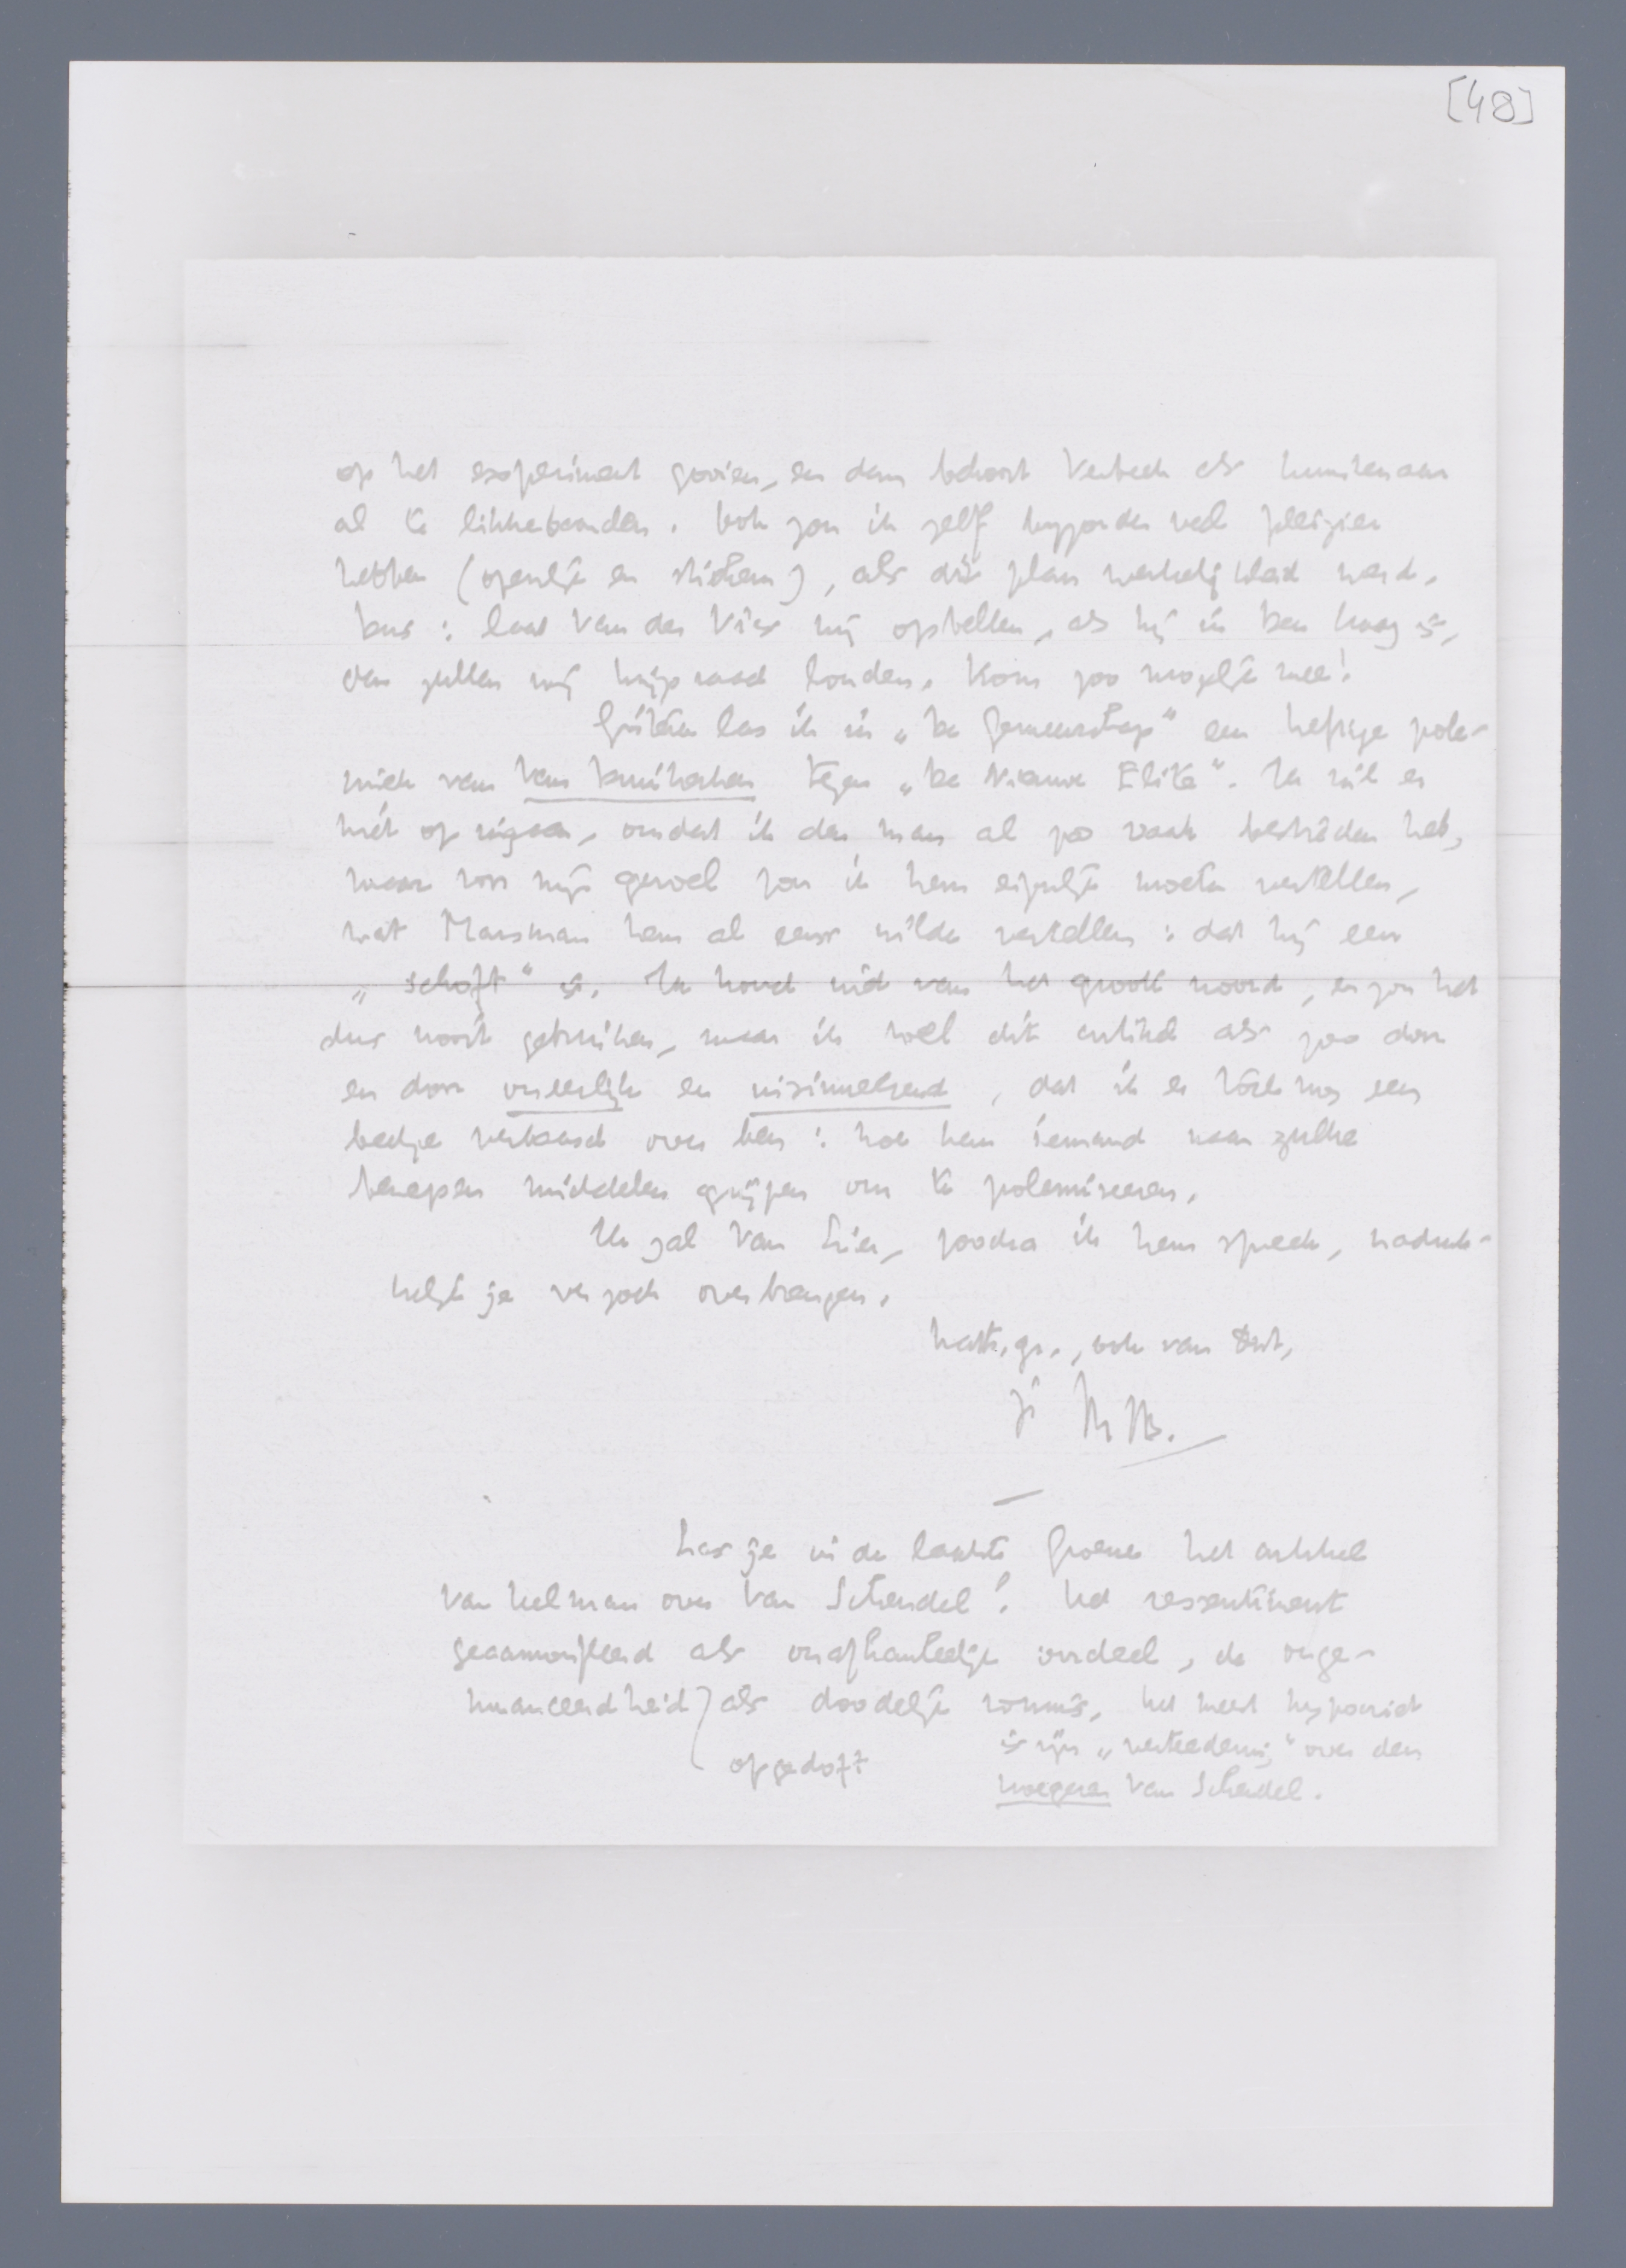 [48]
op het experiment gooien, en dan behoort Verbeek als kunstenaar
al te likkebaarden. Ook zou ik zelf bijzonder veel plezier
hebben (openlijk en stiekem), als dit plan werkelijkheid werd.
Dus: laat Van der Vies mij opbellen, als hij in Den Haag is,
dan zullen wij krijgsraad houden. Kom zoo mogelijk mee!
Gisteren las ik in „De Gemeenschap” een heftige pole-
miek van van Duinkerken tegen „De Nieuwe Elite”. Ik wil er
niet op ingaan, omdat ik den man al zoo vaak bestreden heb,
maar voor mijn gevoel zou ik hem eigenlijk moeten vertellen,
wat Marsman hem al eens wilde vertellen: dat hij een
„schoft” is. Ik houd niet van het groote woord, en zou het
dus nooit gebruiken, maar ik voel dit artikel als zoo door
en door oneerlijk en insinueerend, dat ik er tòch nog een
beetje verbaasd over ben: hoe kan iemand naar zulke
benepen middelen grijpen om te polemiseeren.
Ik zal Van Lier, zoodra ik hem spreek, nadruk-
kelijk je verzoek overbrengen.
Hart. gr., ook van Ant,
je MtB.
Las je in de laatste Groene het artikel
van Helman over Van Schendel? Het ressentiment
gecamoufleerd als onafhankelijk oordeel, de onge-
nuanceerdheid als doodelijk vonnis. Het meest hypocriet
opgedoft
is zijn „verteedering” over den
vroegeren Van Schendel.